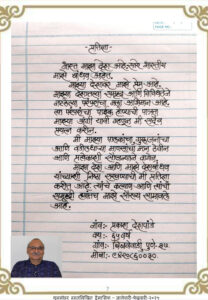 प्रतिज्ञा
भारत माझा देश आहे. सारे भारतीय
माझे बांधव आहेत.
माझ्या देशावर माझे प्रेम आहे.
माझ्या देशातल्या समृद्ध आणि विविधतेने
नटलेल्या परंपरांचा मला अभिमान आहे.
त्या परंपरांचा पाईक होण्याची पात्रता
माझ्या अंगी यावी म्हणून मी सदैव
प्रयत्न करीन.
मी माझ्या पालकांचा, गुरुजनांचा
आणि वडीलधाऱ्या माणसांचा मान ठेवीन
आणि प्रत्येकाशी सौजन्याने वागेन.
माझा देश आणि माझे देशबांधव
यांच्याशी निष्ठा राखण्याची मी प्रतिज्ञा
करीत आहे. त्यांचे कल्याण आणि त्यांची
समृद्धी ह्यातच माझे सौख्य सामावले
आहे.
नाव:- प्रकाश देशपांडे
वय:- ६५ वर्षे
पुणे-३७.